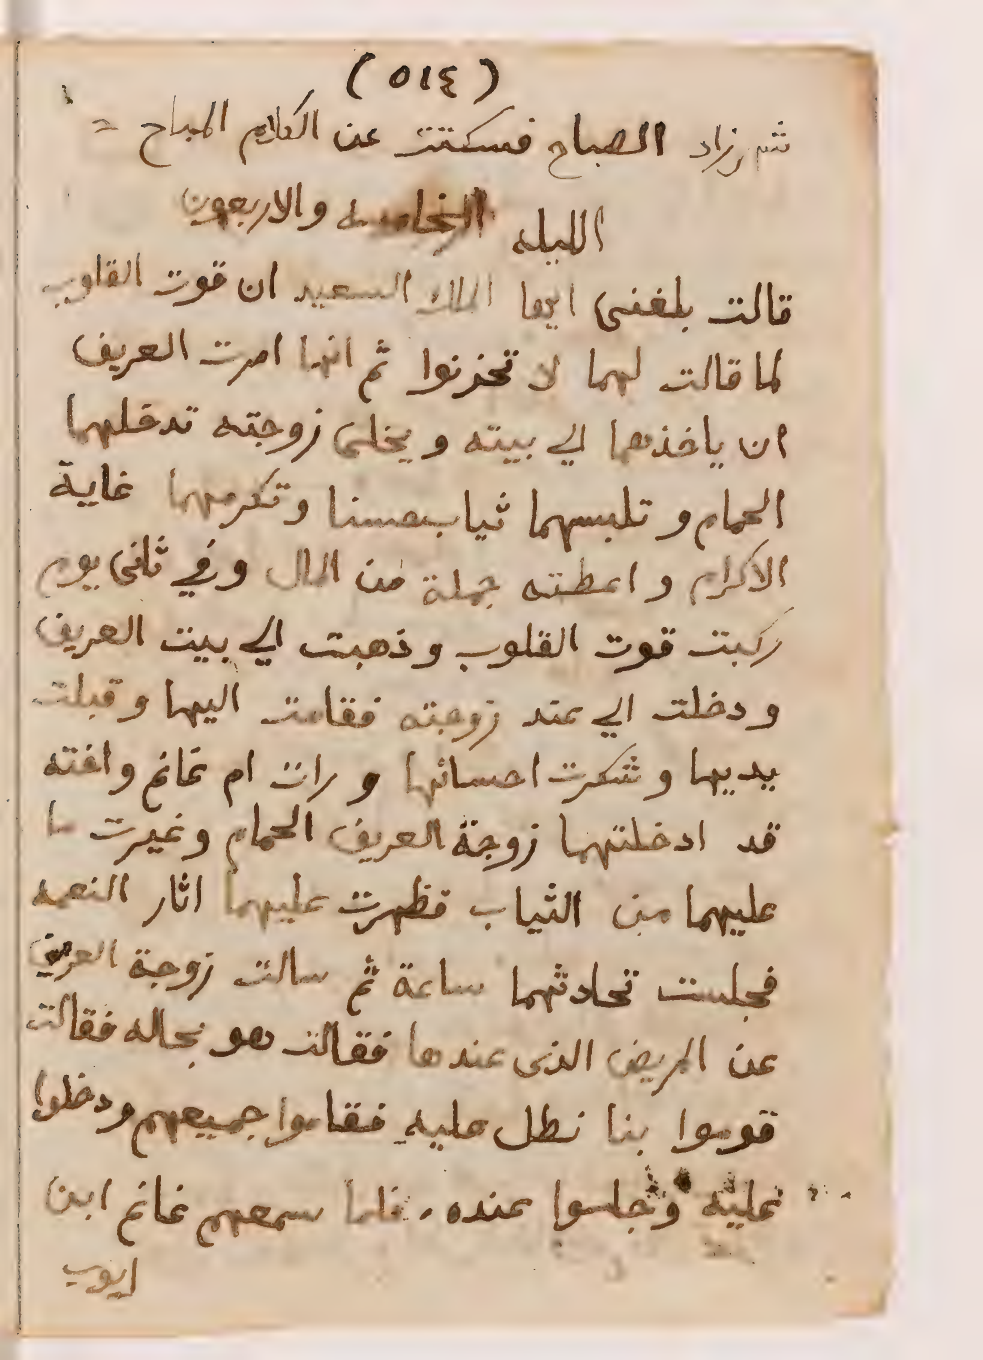 (٥١٤)
شهرزاد الصباح فسكتت عن الكلام المباح
الليله الخامسه والاربعون
قالت بلغنى ايها الملك السعيد ان قوت القلوب
لما قالت لهما لا تحزنوا ثم انها امرت العريف
ان ياخذهما الي بيته ويخلى زوجته تدخلهما
الحمام وتلبسهما ثياب حسنا وتكرمهما غاية
الاكرام واعطته جملة من المال وفي ثانى يوم
ركبت قوت القلوب وذهبت الي بيت العريف
ودخلت الي عند زوجته فقامت اليها وقبلت
يديها وشكرت احسانها ورات ام غانم واخته
قد ادخلتهما زوجة العريف الحمام وغيرت ما
عليهما من الثياب فظهرت عليهما اثار النعمه
فجلست تحادثهما ساعة ثم سالت زوجة العريف
عن المريض الذى عندها فقالت هو بحاله فقالت
قوموا بنا نطل عليه فقاموا جميعهم ودخلوا
عليه وجلسوا عنده فلما سمعهم غانم ابن
ايوب